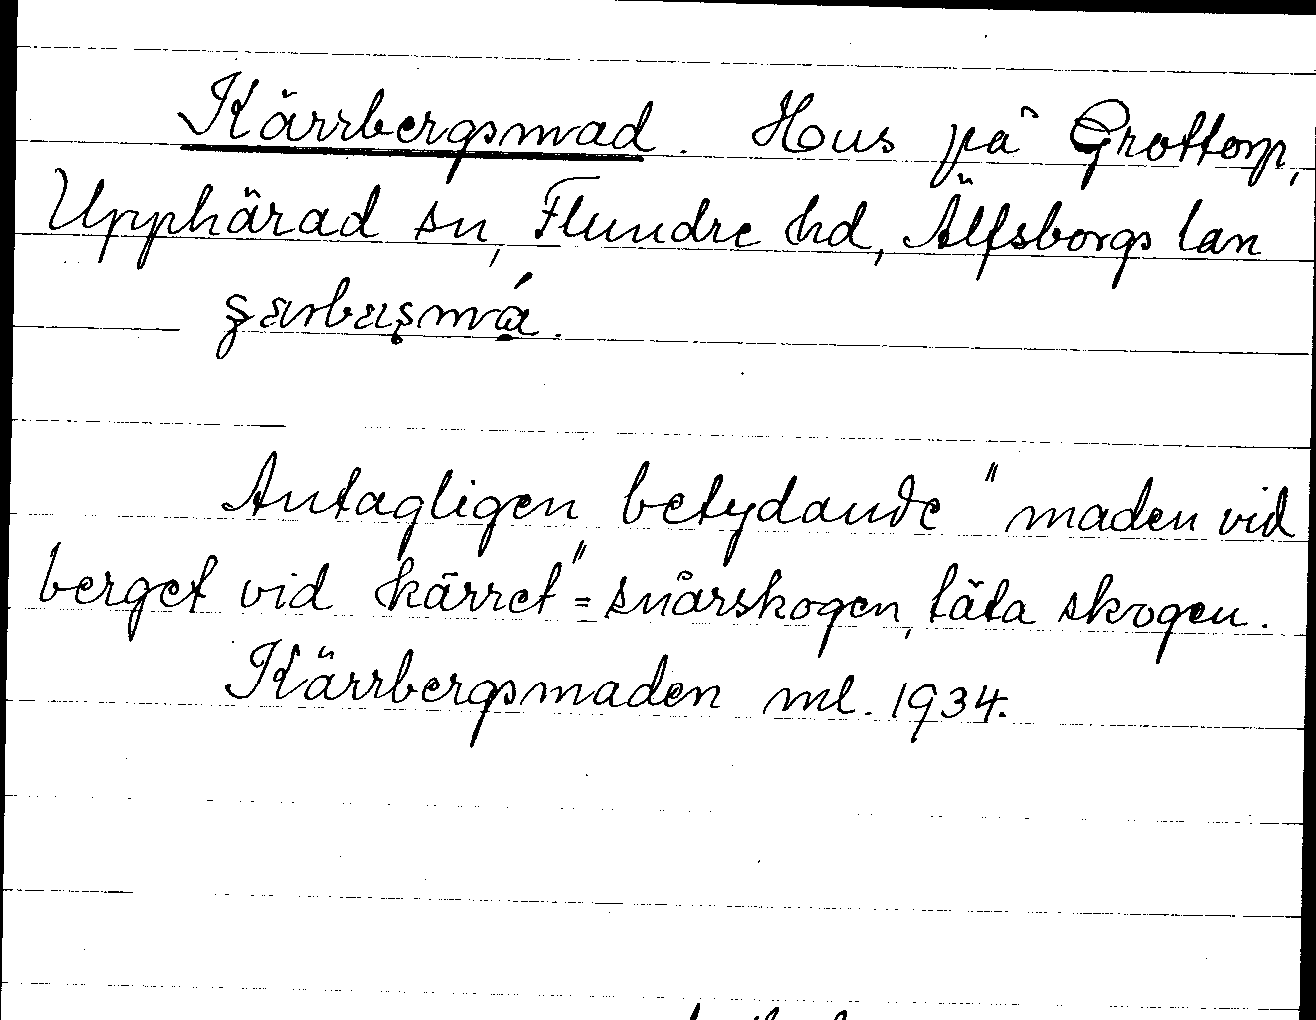 Kärrbergsmad. Hus på Grottorp,
Upphärad sn, Flundre hd, Älfsborgs lan
Antagligen betydande "maden vid
berget vid kärret" = snårskogen, täta skogen.
Kärrbergsmaden ml. 1934.